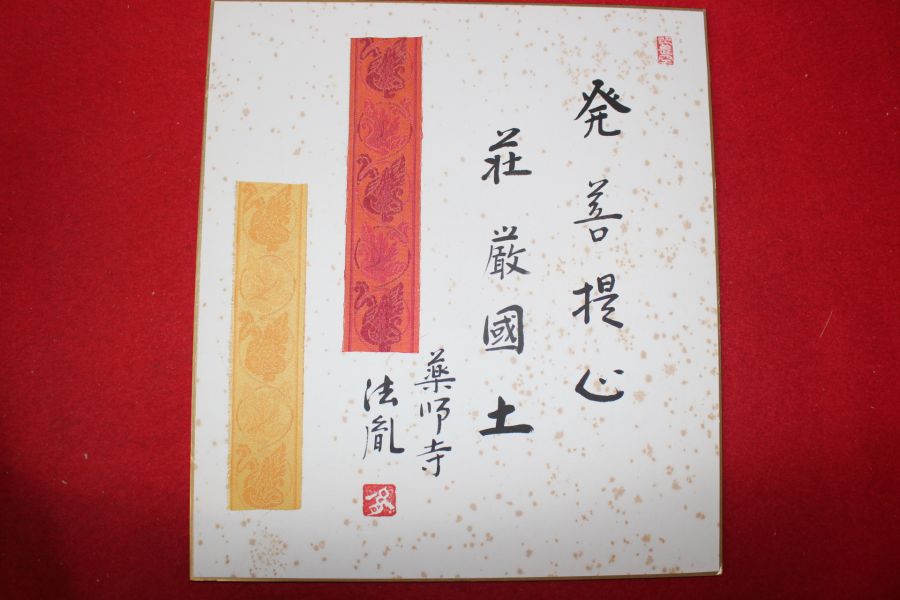 発菩提心
荘厳國土
薬師寺
法胤